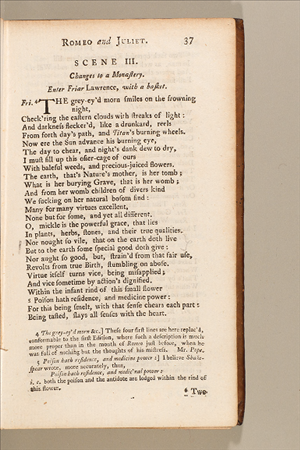 ROMEO and JULIET. 37
SCENE III.
Changes to a Monastery.
Enter Friar Lawrence, with a basket.
Fri. ⁴ THE grey-ey'd morn smiles on the frowning
night,
Check'ring the eastern clouds with streaks of light:
And darkness flecker'd, like a drunkard, reels
From forth day's path, and Titan's burning wheels.
Now ere the Sun advance his burning eye,
The day to chear, and night's dank dew to dry,
I must fill up this osier-cage of ours
With baleful weeds, and precious-juiced flowers.
The earth, that's Nature's mother, is her tomb;
What is her burying Grave, that is her womb;
And from her womb children of divers kind
We sucking on her natural bosom find:
Many for many virtues excellent,
None but for some, and yet all different.
O, mickle is the powerful grace, that lies
In plants, herbs, stones, and their true qualities.
Nor nought so vile, that on the earth doth live
But to the earth some special good doth give:
Nor aught so good, but, strain'd from that fair use,
Revolts from true Birth, stumbling on abuse.
Virtue itself turns vice, being misapplied;
And vice sometime by action's dignified.
Within the infant rind of this small flower
5 Poison hath residence, and medicine power:
For this being smelt, with that sense chears each part:
Being tasted, slays all senses with the heart.
4 The grey-ey'd morn &c.] These four first lines are here replac'd,
conformable to the first Edition, where such a description is much
more proper than in the mouth of Romeo just before, when he
was full of nothing but the thoughts of his mistress. Mr. Pope.
5 Poison hath residence, and medicine power:] I believe Shake-
spear wrote, more accurately, thus,
Poison hath residence, and medic'nal power:
i. e. both the poison and the antidote are lodged within the rind of
this flower.
⁶ Two